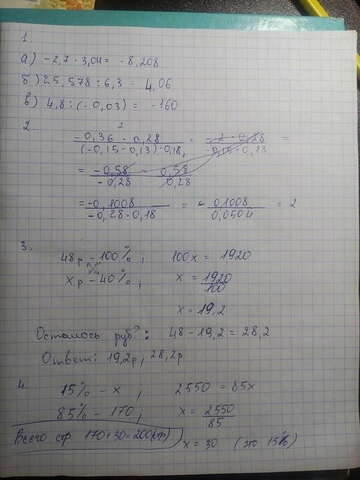 1
а) -2,7 · 3,04 = -8,208
б) 25,578 : 6,3 = 4,06
в) 4,8 : (-0,03) = -160
2
-0,36 · 0,28 / (-0,15 - 0,13) · 0,18
= -0,58 / -0,28 0,58 / 0,28
= -0,1008 / -0,28 · 0,18 = - 0,1008 / 0,0504 = 2
3.
48р - 100% ; 100x = 1920
xр - 40% ; x = 1920 / 100
x = 19,2
Осталось руб: 48 - 19,2 = 28,2
Ответ: 19,2р, 28,2р
4.
15% - x ; 2550 = 85x
85% - 170 ; x = 2550 / 85
Всего стр 170+30=200(стр) x = 30 (это 15%)